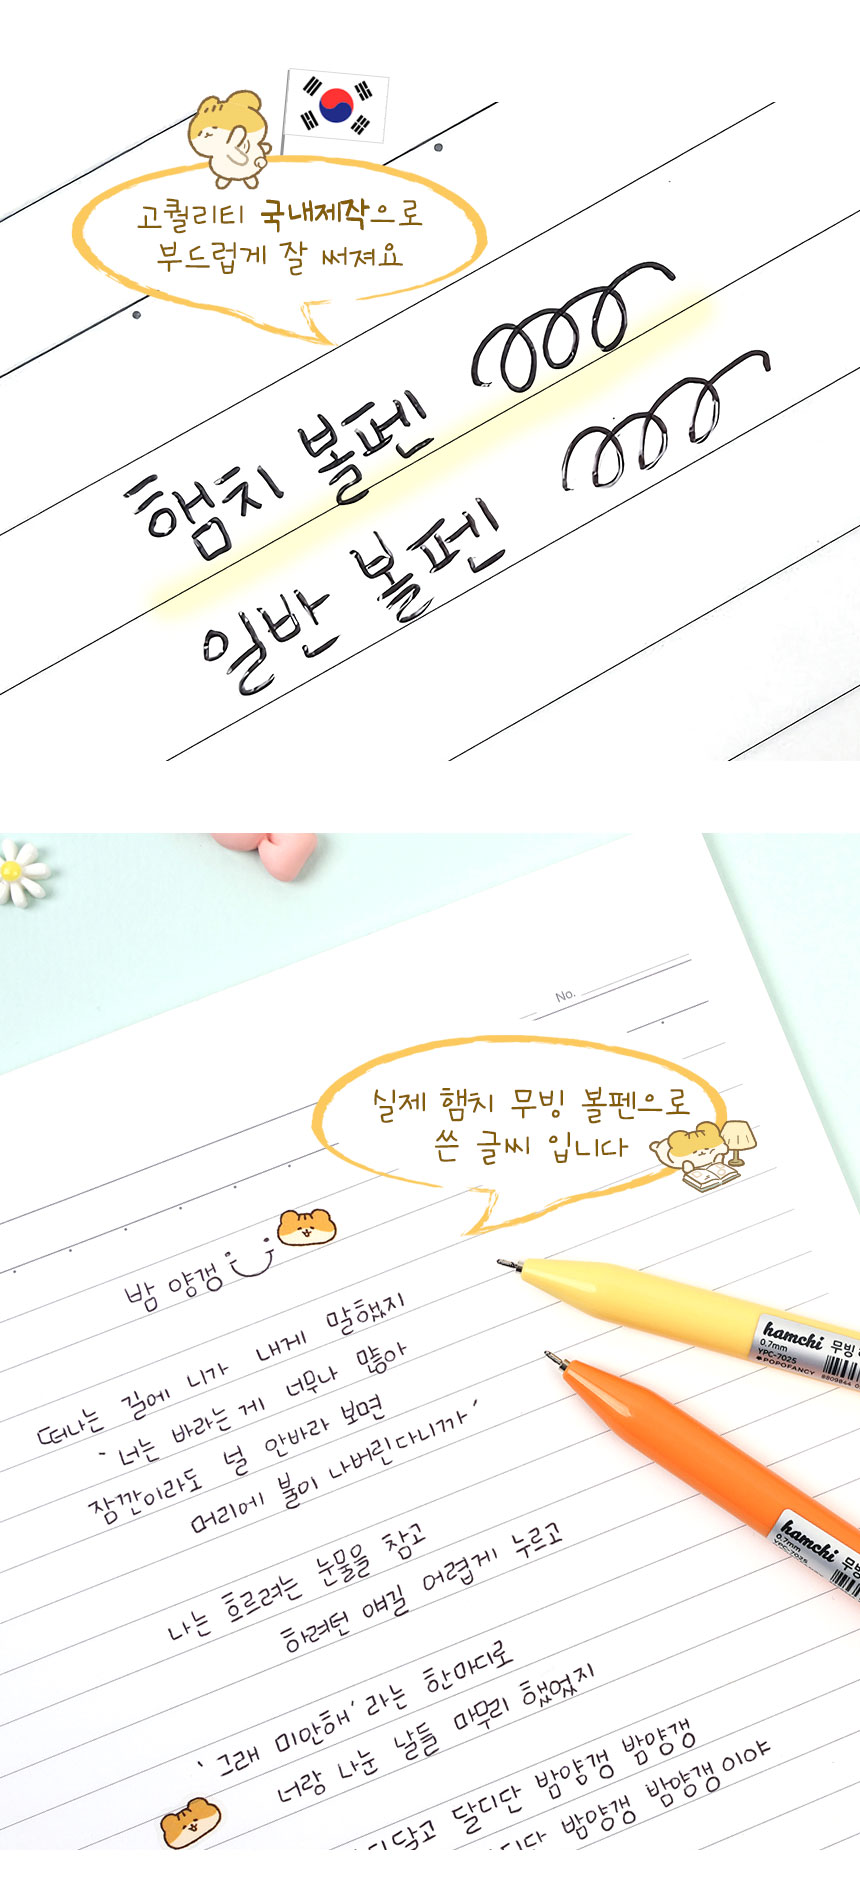 고퀄리티 국내제작으로
부드럽게 잘 써져요
햄치 볼펜
일반 볼펜
No.
실제 햄치 무빙 볼펜으로
쓴 글씨 입니다
밤 양갱
떠나는 길에 니가 내게 말했지
‘너는 바라는 게 너무나 많아
잠깐이라도 널 안바라 보면
머리에 불이 나버린다니까’
나는 흐르려는 눈물을 참고
하려던 얘길 어렵게 누르고
‘그래 미안해’라는 한마디로
너랑 나눈 날들 마무리 했었지
디달고 달디단 밤양갱 밤양갱
디단 밤양갱 밤양갱이야
hamchi 무빙
0.7mm
YPC-7025
POPOFANCY
8809844
hamchi 무빙
0.7mm
YPC-7025